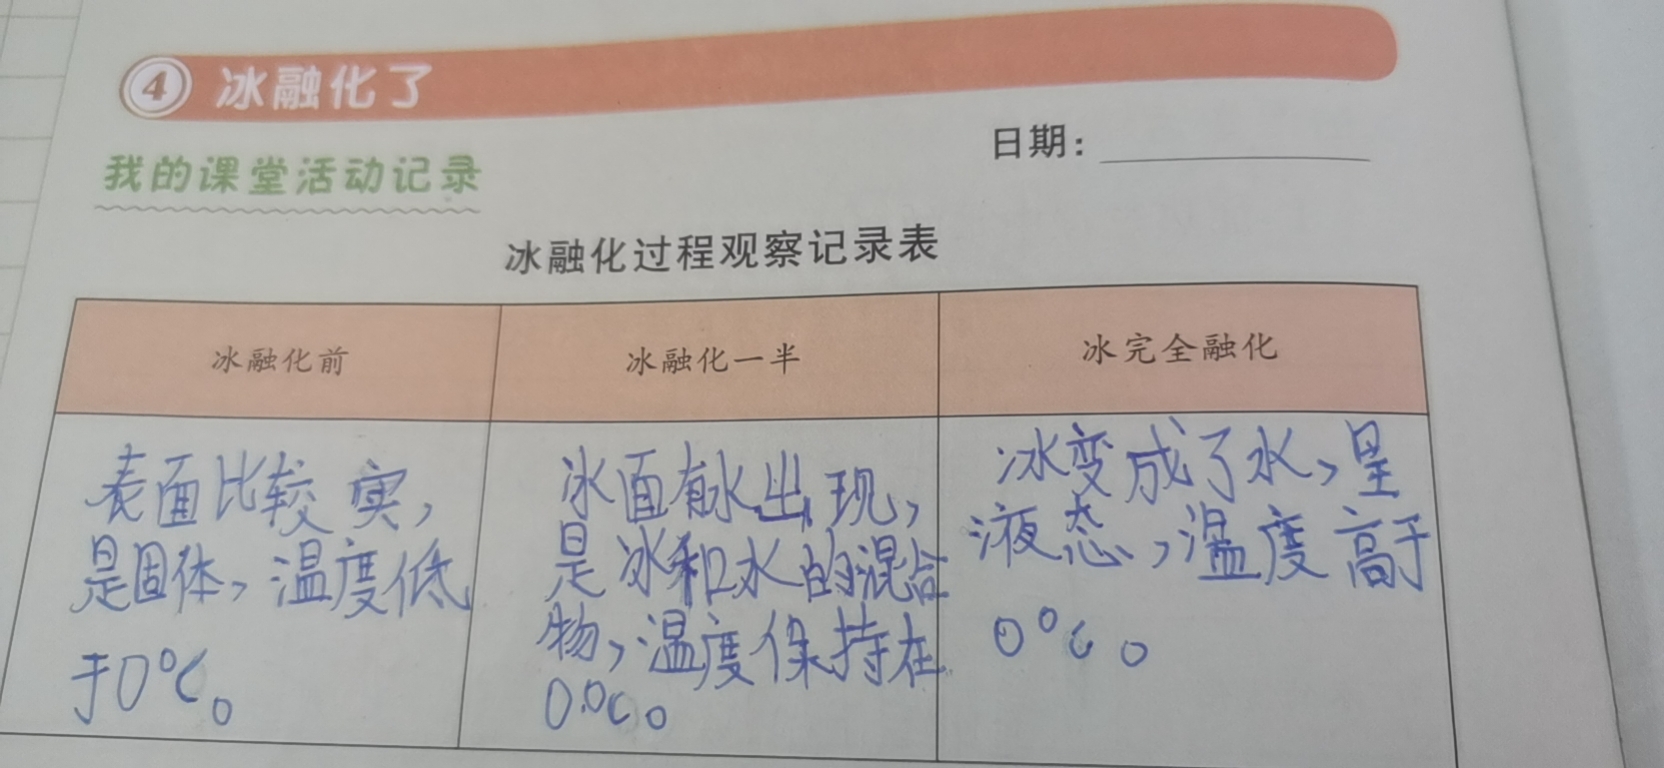 4 冰融化了
日期：
我的课堂活动记录
冰融化过程观察记录表
冰融化前
冰融化一半
冰完全融化
表面比较实，
是固体，温度低
于0℃。
冰面有水出现，
是冰和水的混合
物，温度保持在
0℃。
冰变成了水，呈
液态，温度高于
0℃。